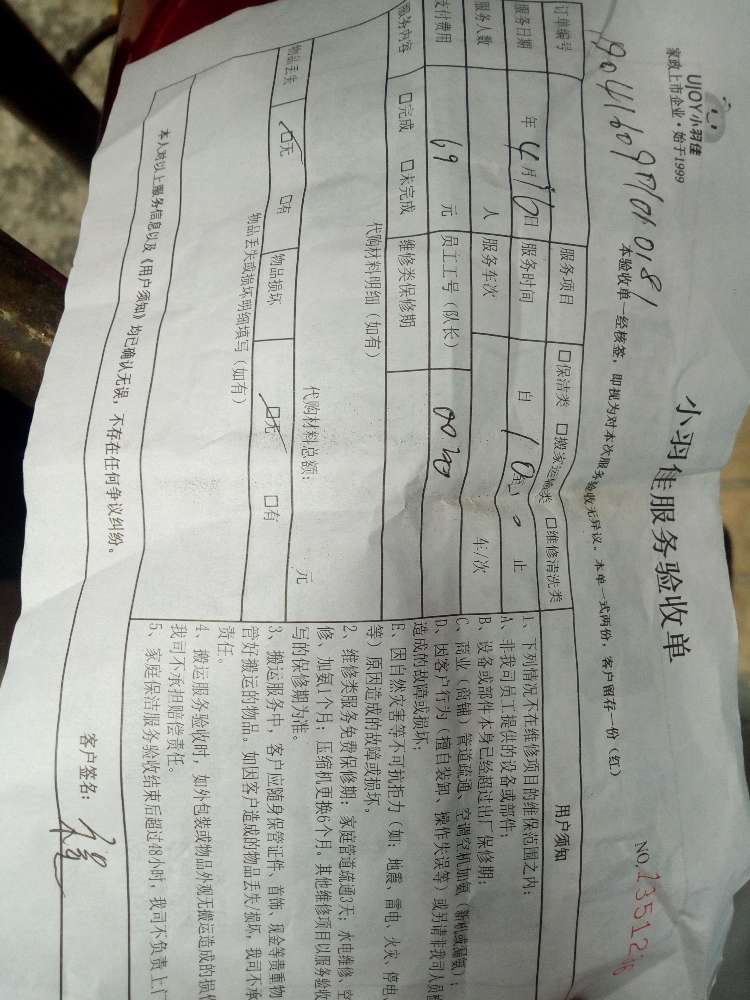 UJOY小羽佳
家政上市企业·始于1999
小羽佳服务验收单
NO.
本验收单一经核签，即视为对本次服务验收无异议。本单一式两份，客户留存一份（红）
订单编号
服务项目 □保洁类 □搬家运输类 □维修清洗类
服务日期 年 4月16日 服务时间 自 10 至 止
服务人数 人 服务车次 车/次
支付费用 69 元 员工工号（队长） 0020
服务内容 □完成 □未完成 维修类保修期
代购材料明细（如有）
代购材料总额： 元
物品丢失 □无 □有 物品损坏 □无 □有
物品丢失或损坏明细填写（如有）
用户须知
1、下列情况不在维修项目的维保范围之内：
A、非我司员工提供的设备或部件；
B、设备或部件本身已经超过出厂保修期；
C、商业（商铺）管道疏通、空调空机加氨（新机或漏氨）；
D、因客户行为（擅自装卸、操作失误等）或另请非我司人员
造成的故障或损坏；
E、因自然灾害等不可抗拒力（如：地震、雷电、火灾、停电、
等）原因造成的故障或损坏。
2、维修类服务免费保修期：家庭管道疏通3天；水电维修、空
修、加氨1个月；压缩机更换6个月。其他维修项目以服务验收
写的保修期为准。
3、搬运服务中，客户应随身保管证件、首饰、现金等贵重物
管好搬运的物品。如因客户造成的物品丢失/损坏，我司不承
责任。
4、搬运服务验收时，如外包装或物品外观无搬运造成的损
我司不承担赔偿责任。
5、家庭保洁服务验收结束后超过48小时，我司不负责上门
本人对以上服务信息以及《用户须知》均已确认无误，不存在任何争议纠纷。
客户签名：